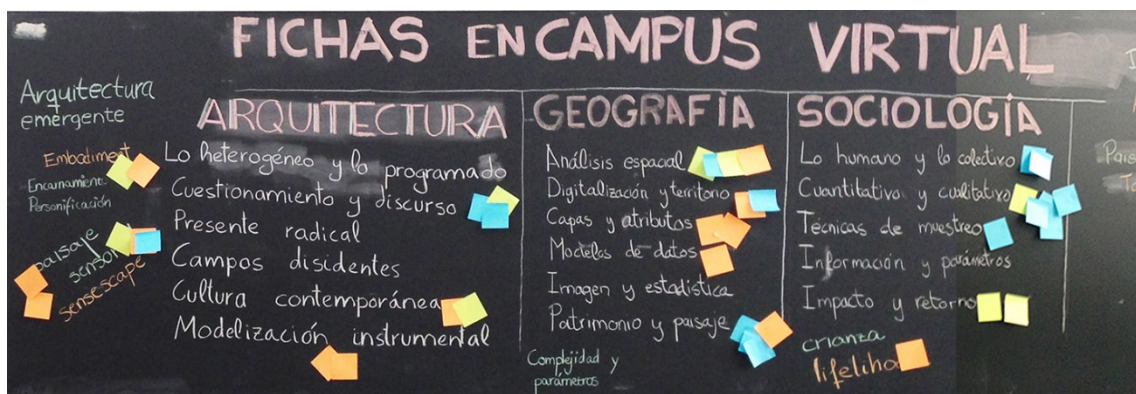 FICHAS EN CAMPUS VIRTUAL
Arquitectura
emergente
Embodiment
Encarnamiento
Personificación
paisaje
sensor
sensescape
ARQUITECTURA
Lo heterogéneo y lo programado
Cuestionamiento y discurso
Presente radical
Campos disidentes
Cultura contemporánea
Modelización instrumental
GEOGRAFÍA
Análisis espacial
Digitalización y territorio
Capas y atributos
Modelos de datos
Imagen y estadística
Patrimonio y paisaje
Complejidad y
parámetros
SOCIOLOGÍA
Lo humano y lo colectivo
Cuantitativo y cualitativo
Técnicas de muestreo
Información y parámetros
Impacto y retorno
crianza
lifeliho